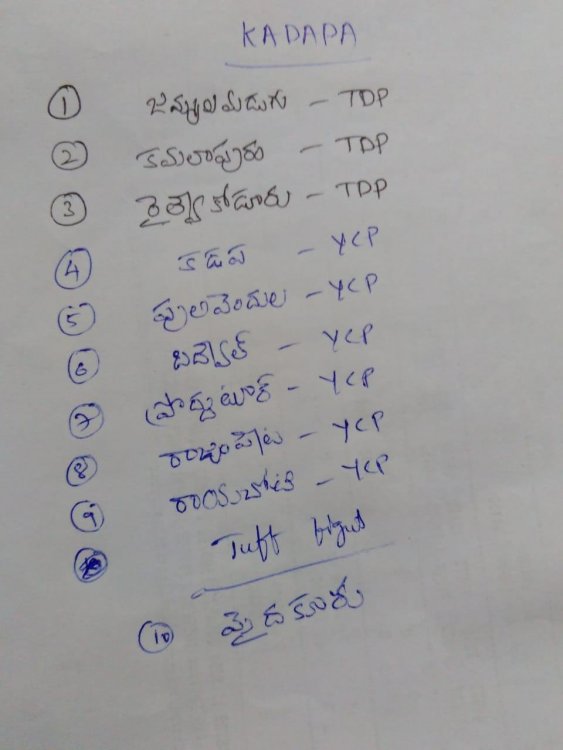 KADAPA
① జమ్మలమడుగు - TDP
② కమలాపురం - TDP
③ రైల్వే కోడూరు - TDP
④ కడప - YCP
⑤ పులివెందుల - YCP
⑥ బద్వేల్ - YCP
⑦ ప్రొద్దుటూర్ - YCP
⑧ రాజంపేట - YCP
⑨ రాయచోటి - YCP
Tuff fight
⑩ మైదుకూరు